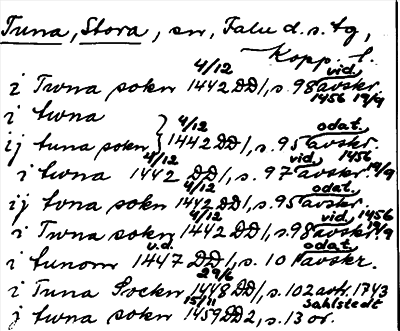 Tuna, Stora, sn, Falu d.s. tg,
Kopp. l.
i Twna sokn 4/12 1442 DD1, s. 98 vid. avskr. 1456 19/9
i twna
ij tuna sokn 4/12 1442 DD1, s. 95 odat. avskr.
i twna 4/12 1442 DD1, s. 97 vid. avskr. 1456 19/9
ij tvna sokn 4/12 1442 DD1, s. 95 odat. avskr.
i Twna sokn 4/12 1442 DD1, s. 98 vid. avskr. 1456 19/9
i tunom u.d. 1447 DD1, s. 101 odat. avskr.
i Tuna Sockn 29/6 1448 DD1, s. 102 avtr. 1743 Sahlstedt
j twna sokn 15/11 1459 DD2, s. 13 or.